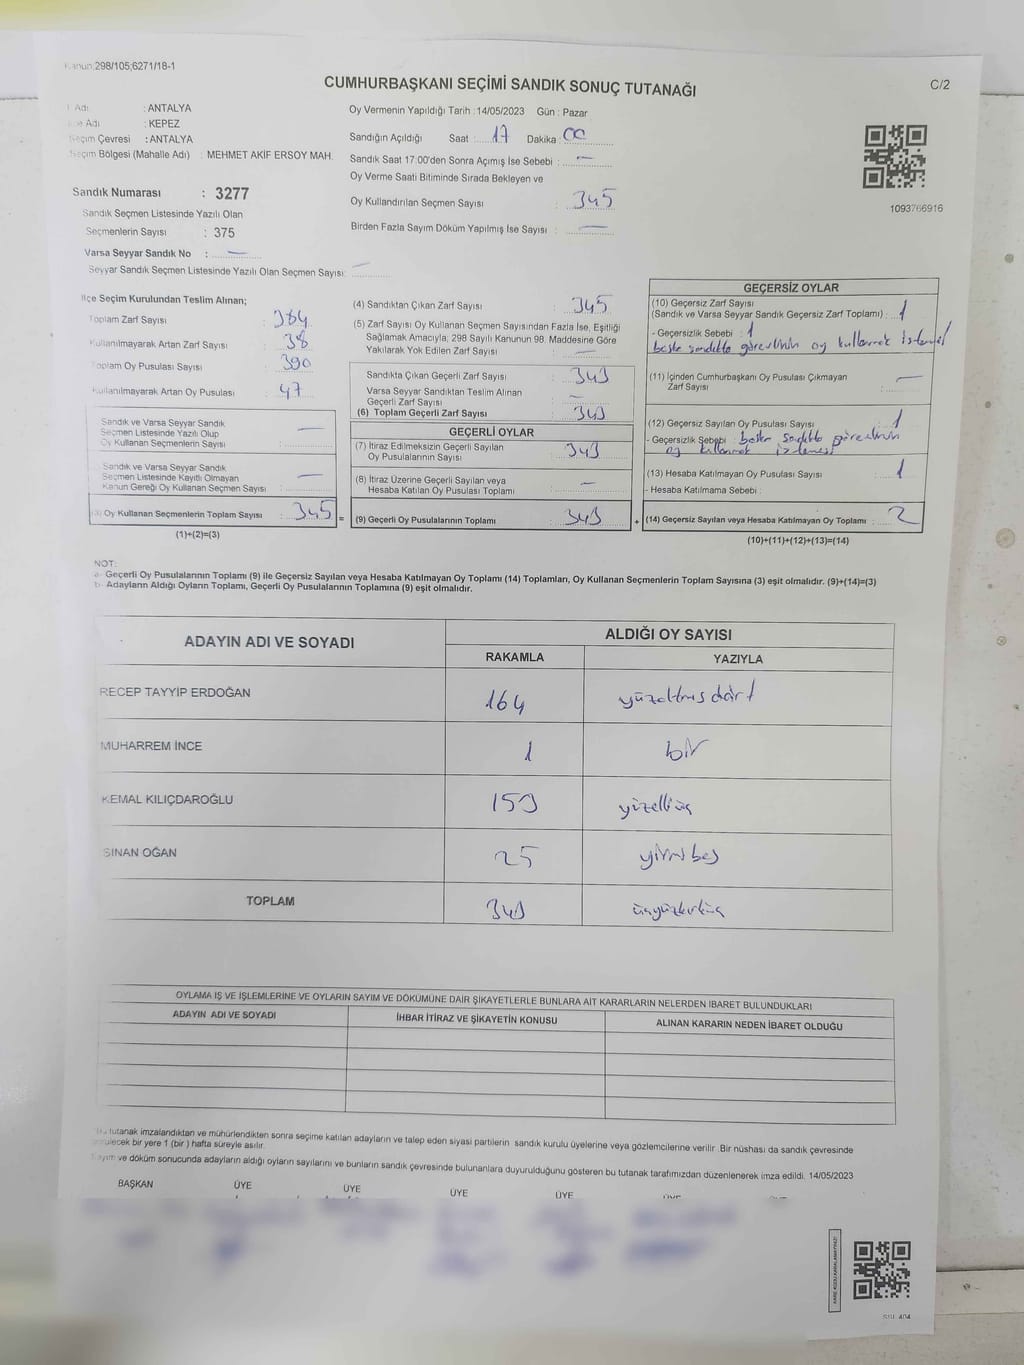 Kanun:298/105;6271/18-1
CUMHURBAŞKANI SEÇİMİ SANDIK SONUÇ TUTANAĞI
C/2
Adı : ANTALYA
Adı : KEPEZ
Seçim Çevresi : ANTALYA
Seçim Bölgesi (Mahalle Adı) : MEHMET AKİF ERSOY MAH.
Oy Vermenin Yapıldığı Tarih : 14/05/2023 Gün : Pazar
Sandığın Açıldığı Saat : 17 Dakika : 00
Sandık Saat 17:00'den Sonra Açımış İse Sebebi : —
Oy Verme Saati Bitiminde Sırada Bekleyen ve
Oy Kullandırılan Seçmen Sayısı : 345
Birden Fazla Sayım Döküm Yapılmış İse Sayısı : —
1093766916
Sandık Numarası : 3277
Sandık Seçmen Listesinde Yazılı Olan
Seçmenlerin Sayısı : 375
Varsa Seyyar Sandık No : —
Seyyar Sandık Seçmen Listesinde Yazılı Olan Seçmen Sayısı: —
İlçe Seçim Kurulundan Teslim Alınan;
Toplam Zarf Sayısı : 384
Kullanılmayarak Artan Zarf Sayısı : 38
Toplam Oy Pusulası Sayısı : 390
Kullanılmayarak Artan Oy Pusulası : 47
Sandık ve Varsa Seyyar Sandık
Seçmen Listesinde Yazılı Olup
Oy Kullanan Seçmenlerin Sayısı : —
Sandık ve Varsa Seyyar Sandık
Seçmen Listesinde Kayıtlı Olmayan
Kanun Gereği Oy Kullanan Seçmen Sayısı : —
(3) Oy Kullanan Seçmenlerin Toplam Sayısı : 345
(1)+(2)=(3)
(4) Sandıktan Çıkan Zarf Sayısı : 345
(5) Zarf Sayısı Oy Kullanan Seçmen Sayısından Fazla İse, Eşitliği
Sağlamak Amacıyla, 298 Sayılı Kanunun 98. Maddesine Göre
Yakılarak Yok Edilen Zarf Sayısı : —
Sandıkta Çıkan Geçerli Zarf Sayısı : 343
Varsa Seyyar Sandıktan Teslim Alınan
Geçerli Zarf Sayısı : —
(6) Toplam Geçerli Zarf Sayısı : 343
GEÇERLİ OYLAR
(7) İtiraz Edilmeksizin Geçerli Sayılan
Oy Pusulalarının Sayısı : 343
(8) İtiraz Üzerine Geçerli Sayılan veya
Hesaba Katılan Oy Pusulası Toplamı : —
= (9) Geçerli Oy Pusulalarının Toplamı : 343
GEÇERSİZ OYLAR
(10) Geçersiz Zarf Sayısı
(Sandık ve Varsa Seyyar Sandık Geçersiz Zarf Toplamı) : 1
- Geçersizlik Sebebi : 1
başka sandıkta görevlinin oy kullanmak istemesi
(11) İçinden Cumhurbaşkanı Oy Pusulası Çıkmayan
Zarf Sayısı : —
(12) Geçersiz Sayılan Oy Pusulası Sayısı : 1
- Geçersizlik Sebebi : başka sandıkta görevlinin
oy kullanmak istemesi
(13) Hesaba Katılmayan Oy Pusulası Sayısı : 1
- Hesaba Katılmama Sebebi :
+ (14) Geçersiz Sayılan veya Hesaba Katılmayan Oy Toplamı : 2
(10)+(11)+(12)+(13)=(14)
NOT:
a- Geçerli Oy Pusulalarının Toplamı (9) ile Geçersiz Sayılan veya Hesaba Katılmayan Oy Toplamı (14) Toplamları, Oy Kullanan Seçmenlerin Toplam Sayısına (3) eşit olmalıdır. (9)+(14)=(3)
b- Adayların Aldığı Oyların Toplamı, Geçerli Oy Pusulalarının Toplamına (9) eşit olmalıdır.
ADAYIN ADI VE SOYADI
ALDIĞI OY SAYISI
RAKAMLA YAZIYLA
RECEP TAYYİP ERDOĞAN 164 yüzaltmışdört
MUHARREM İNCE 1 bir
KEMAL KILIÇDAROĞLU 153 yüzelliüç
SİNAN OĞAN 25 yirmibeş
TOPLAM 343 üçyüzkırküç
OYLAMA İŞ VE İŞLEMLERİNE VE OYLARIN SAYIM VE DÖKÜMÜNE DAİR ŞİKAYETLERLE BUNLARA AİT KARARLARIN NELERDEN İBARET BULUNDUKLARI
ADAYIN ADI VE SOYADI İHBAR İTİRAZ VE ŞİKAYETİN KONUSU ALINAN KARARIN NEDEN İBARET OLDUĞU
Bu tutanak imzalandıktan ve mühürlendikten sonra seçime katılan adayların ve talep eden siyasi partilerin sandık kurulu üyelerine veya gözlemcilerine verilir. Bir nüshası da sandık çevresinde
görülecek bir yere 1 (bir ) hafta süreyle asılır.
Sayım ve döküm sonucunda adayların aldığı oyların sayılarını ve bunların sandık çevresinde bulunanlara duyurulduğunu gösteren bu tutanak tarafımızdan düzenlenerek imza edildi. 14/05/2023
BAŞKAN ÜYE ÜYE ÜYE ÜYE ÜYE